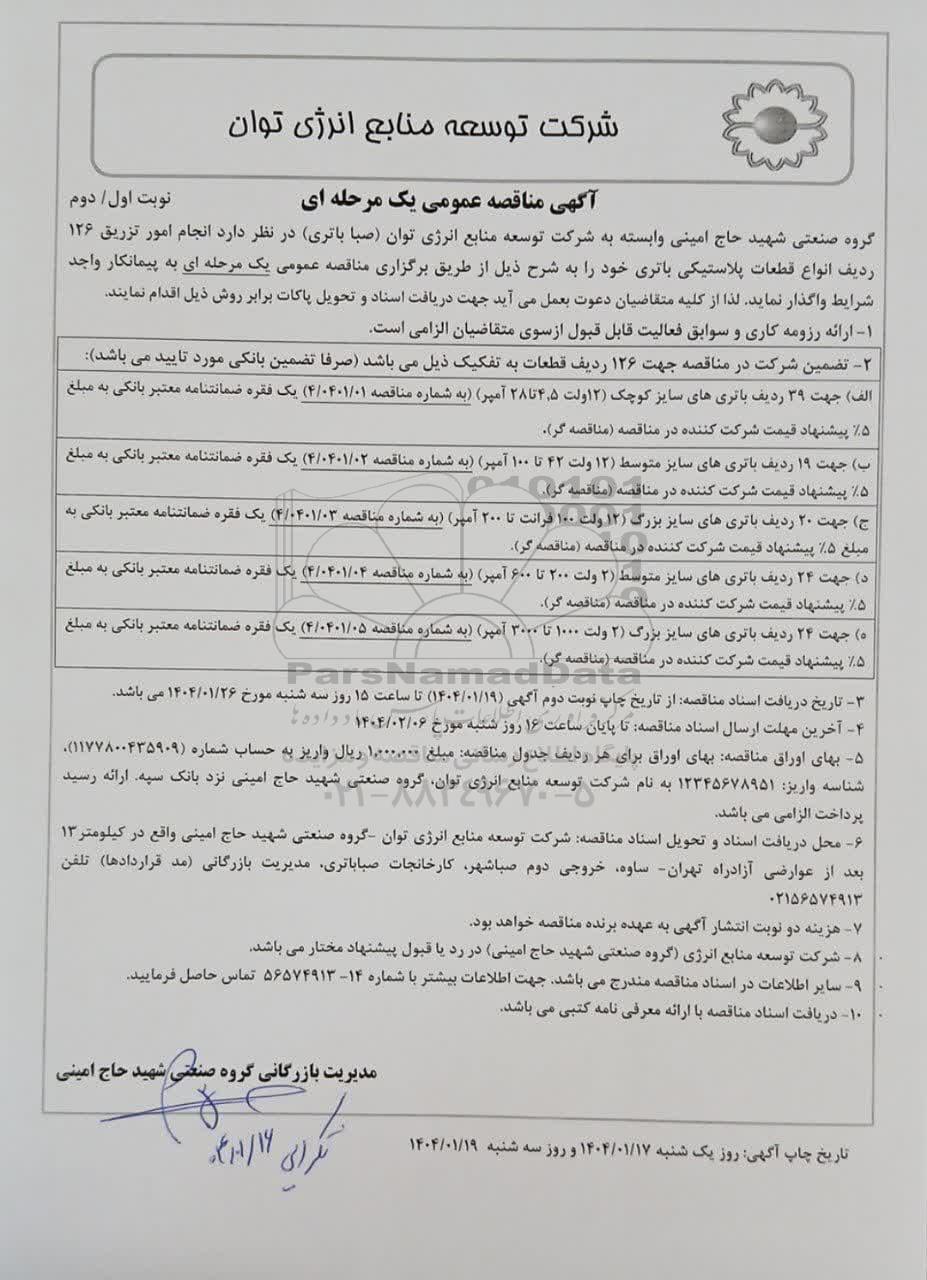 شرکت توسعه منابع انرژی توان
آگهی مناقصه عمومی یک مرحله ای
نوبت اول/ دوم
گروه صنعتی شهید حاج امینی وابسته به شرکت توسعه منابع انرژی توان (صبا باتری) در نظر دارد انجام امور تزریق ۱۲۶
ردیف انواع قطعات پلاستیکی باتری خود را به شرح ذیل از طریق برگزاری مناقصه عمومی یک مرحله ای به پیمانکار واجد
شرایط واگذار نماید. لذا از کلیه متقاضیان دعوت بعمل می آید جهت دریافت اسناد و تحویل پاکات برابر روش ذیل اقدام نمایند.
۱- ارائه رزومه کاری و سوابق فعالیت قابل قبول ازسوی متقاضیان الزامی است.
۲- تضمین شرکت در مناقصه جهت ۱۲۶ ردیف قطعات به تفکیک ذیل می باشد (صرفا تضمین بانکی مورد تایید می باشد):
الف) جهت ۳۹ ردیف باتری های سایز کوچک (۱۲ولت ۴,۵تا۲۸ آمپر) (به شماره مناقصه ۴/۰۴۰۱/۰۱) یک فقره ضمانتنامه معتبر بانکی به مبلغ
۵٪ پیشنهاد قیمت شرکت کننده در مناقصه (مناقصه گر).
ب) جهت ۱۹ ردیف باتری های سایز متوسط (۱۲ ولت ۴۲ تا ۱۰۰ آمپر) (به شماره مناقصه ۴/۰۴۰۱/۰۲) یک فقره ضمانتنامه معتبر بانکی به مبلغ
۵٪ پیشنهاد قیمت شرکت کننده در مناقصه (مناقصه گر).
ج) جهت ۲۰ ردیف باتری های سایز بزرگ (۱۲ ولت ۱۰۰ فرانت تا ۲۰۰ آمپر) (به شماره مناقصه ۴/۰۴۰۱/۰۳) یک فقره ضمانتنامه معتبر بانکی به
مبلغ ۵٪ پیشنهاد قیمت شرکت کننده در مناقصه (مناقصه گر).
د) جهت ۲۴ ردیف باتری های سایز متوسط (۲ ولت ۲۰۰ تا ۶۰۰ آمپر) (به شماره مناقصه ۴/۰۴۰۱/۰۴) یک فقره ضمانتنامه معتبر بانکی به مبلغ
۵٪ پیشنهاد قیمت شرکت کننده در مناقصه (مناقصه گر).
ه) جهت ۲۴ ردیف باتری های سایز بزرگ (۲ ولت ۱۰۰۰ تا ۳۰۰۰ آمپر) (به شماره مناقصه ۴/۰۴۰۱/۰۵) یک فقره ضمانتنامه معتبر بانکی به مبلغ
۵٪ پیشنهاد قیمت شرکت کننده در مناقصه (مناقصه گر).
ParsNamadData
۳- تاریخ دریافت اسناد مناقصه: از تاریخ چاپ نوبت دوم آگهی (۱۴۰۴/۰۱/۱۹) تا ساعت ۱۵ روز سه شنبه مورخ ۱۴۰۴/۰۱/۲۶ می باشد.
۴- آخرین مهلت ارسال اسناد مناقصه: تا پایان ساعت ۱۶ روز شنبه مورخ ۱۴۰۴/۰۲/۰۶
۵- بهای اوراق مناقصه: بهای اوراق برای هر ردیف جدول مناقصه: مبلغ ۱,۰۰۰,۰۰۰ ریال واریز به حساب شماره (۱۱۷۷۸۰۰۴۳۵۹۰۹)،
شناسه واریز: ۱۲۳۴۵۶۷۸۹۵۱ به نام شرکت توسعه منابع انرژی توان، گروه صنعتی شهید حاج امینی نزد بانک سپه. ارائه رسید
۰۲۱-۸۸۳۴۹۶۷۰-۵
پرداخت الزامی می باشد.
۶- محل دریافت اسناد و تحویل اسناد مناقصه: شرکت توسعه منابع انرژی توان -گروه صنعتی شهید حاج امینی واقع در کیلومتر۱۳
بعد از عوارضی آزادراه تهران- ساوه، خروجی دوم صباشهر، کارخانجات صباباتری، مدیریت بازرگانی (مد قراردادها) تلفن
۰۲۱۵۶۵۷۴۹۱۳
۷- هزینه دو نوبت انتشار آگهی به عهده برنده مناقصه خواهد بود.
۸- شرکت توسعه منابع انرژی (گروه صنعتی شهید حاج امینی) در رد یا قبول پیشنهاد مختار می باشد.
۹- سایر اطلاعات در اسناد مناقصه مندرج می باشد. جهت اطلاعات بیشتر با شماره ۱۴- ۵۶۵۷۴۹۱۳ تماس حاصل فرمایید.
۱۰- دریافت اسناد مناقصه با ارائه معرفی نامه کتبی می باشد.
مدیریت بازرگانی گروه صنعتی شهید حاج امینی
تاریخ چاپ آگهی: روز یک شنبه ۱۴۰۴/۰۱/۱۷ و روز سه شنبه ۱۴۰۴/۰۱/۱۹